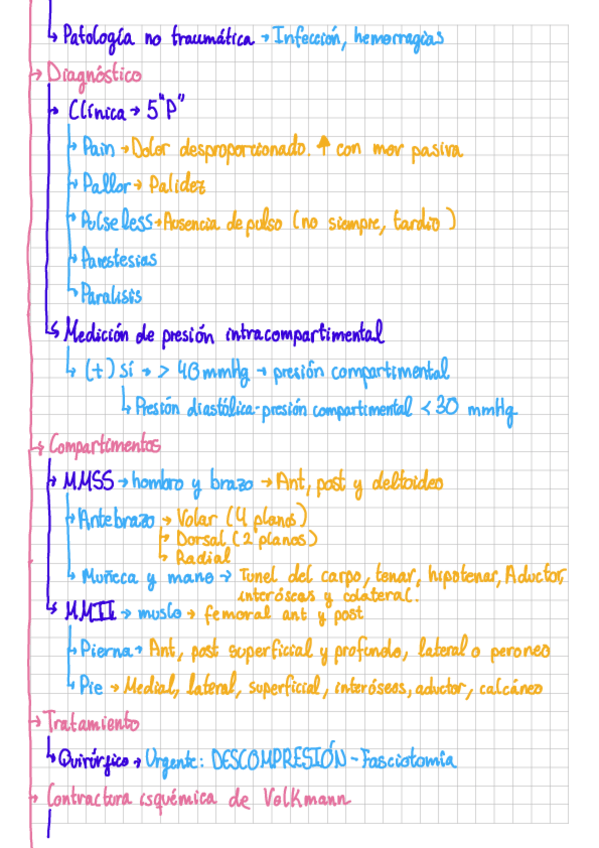 ↳ Patología no traumática → Infección, hemorragias
→ Diagnóstico
↳ Clínica → 5 "P"
↳ Pain → Dolor desproporcionado. ↑ con mov pasiva
↳ Pallor → Palidez
↳ Pulseless → Ausencia de pulso (no siempre, tardío)
↳ Parestesias
↳ Paralisis
↳ Medición de presión intracompartimental
↳ (+) Sí → > 40 mmHg → presión compartimental
↳ Presión diastólica - presión compartimental < 30 mmHg
→ Compartimentos
↳ MMSS → hombro y brazo → Ant, post y deltoideo
↳ Antebrazo → Volar (4 planos)
↳ Dorsal (2 planos)
↳ Radial
↳ Muñeca y mano → Tunel del carpo, tenar, hipotenar, Aductor,
interóseas y colateral.
↳ MMII → muslo → femoral ant y post
↳ Pierna → Ant, post superficial y profundo, lateral o peroneo
↳ Pie → Medial, lateral, superficial, interóseos, aductor, calcáneo
→ Tratamiento
↳ Quirúrgico → Urgente: DESCOMPRESIÓN - Fasciotomía
→ Contractura isquémica de Volkmann